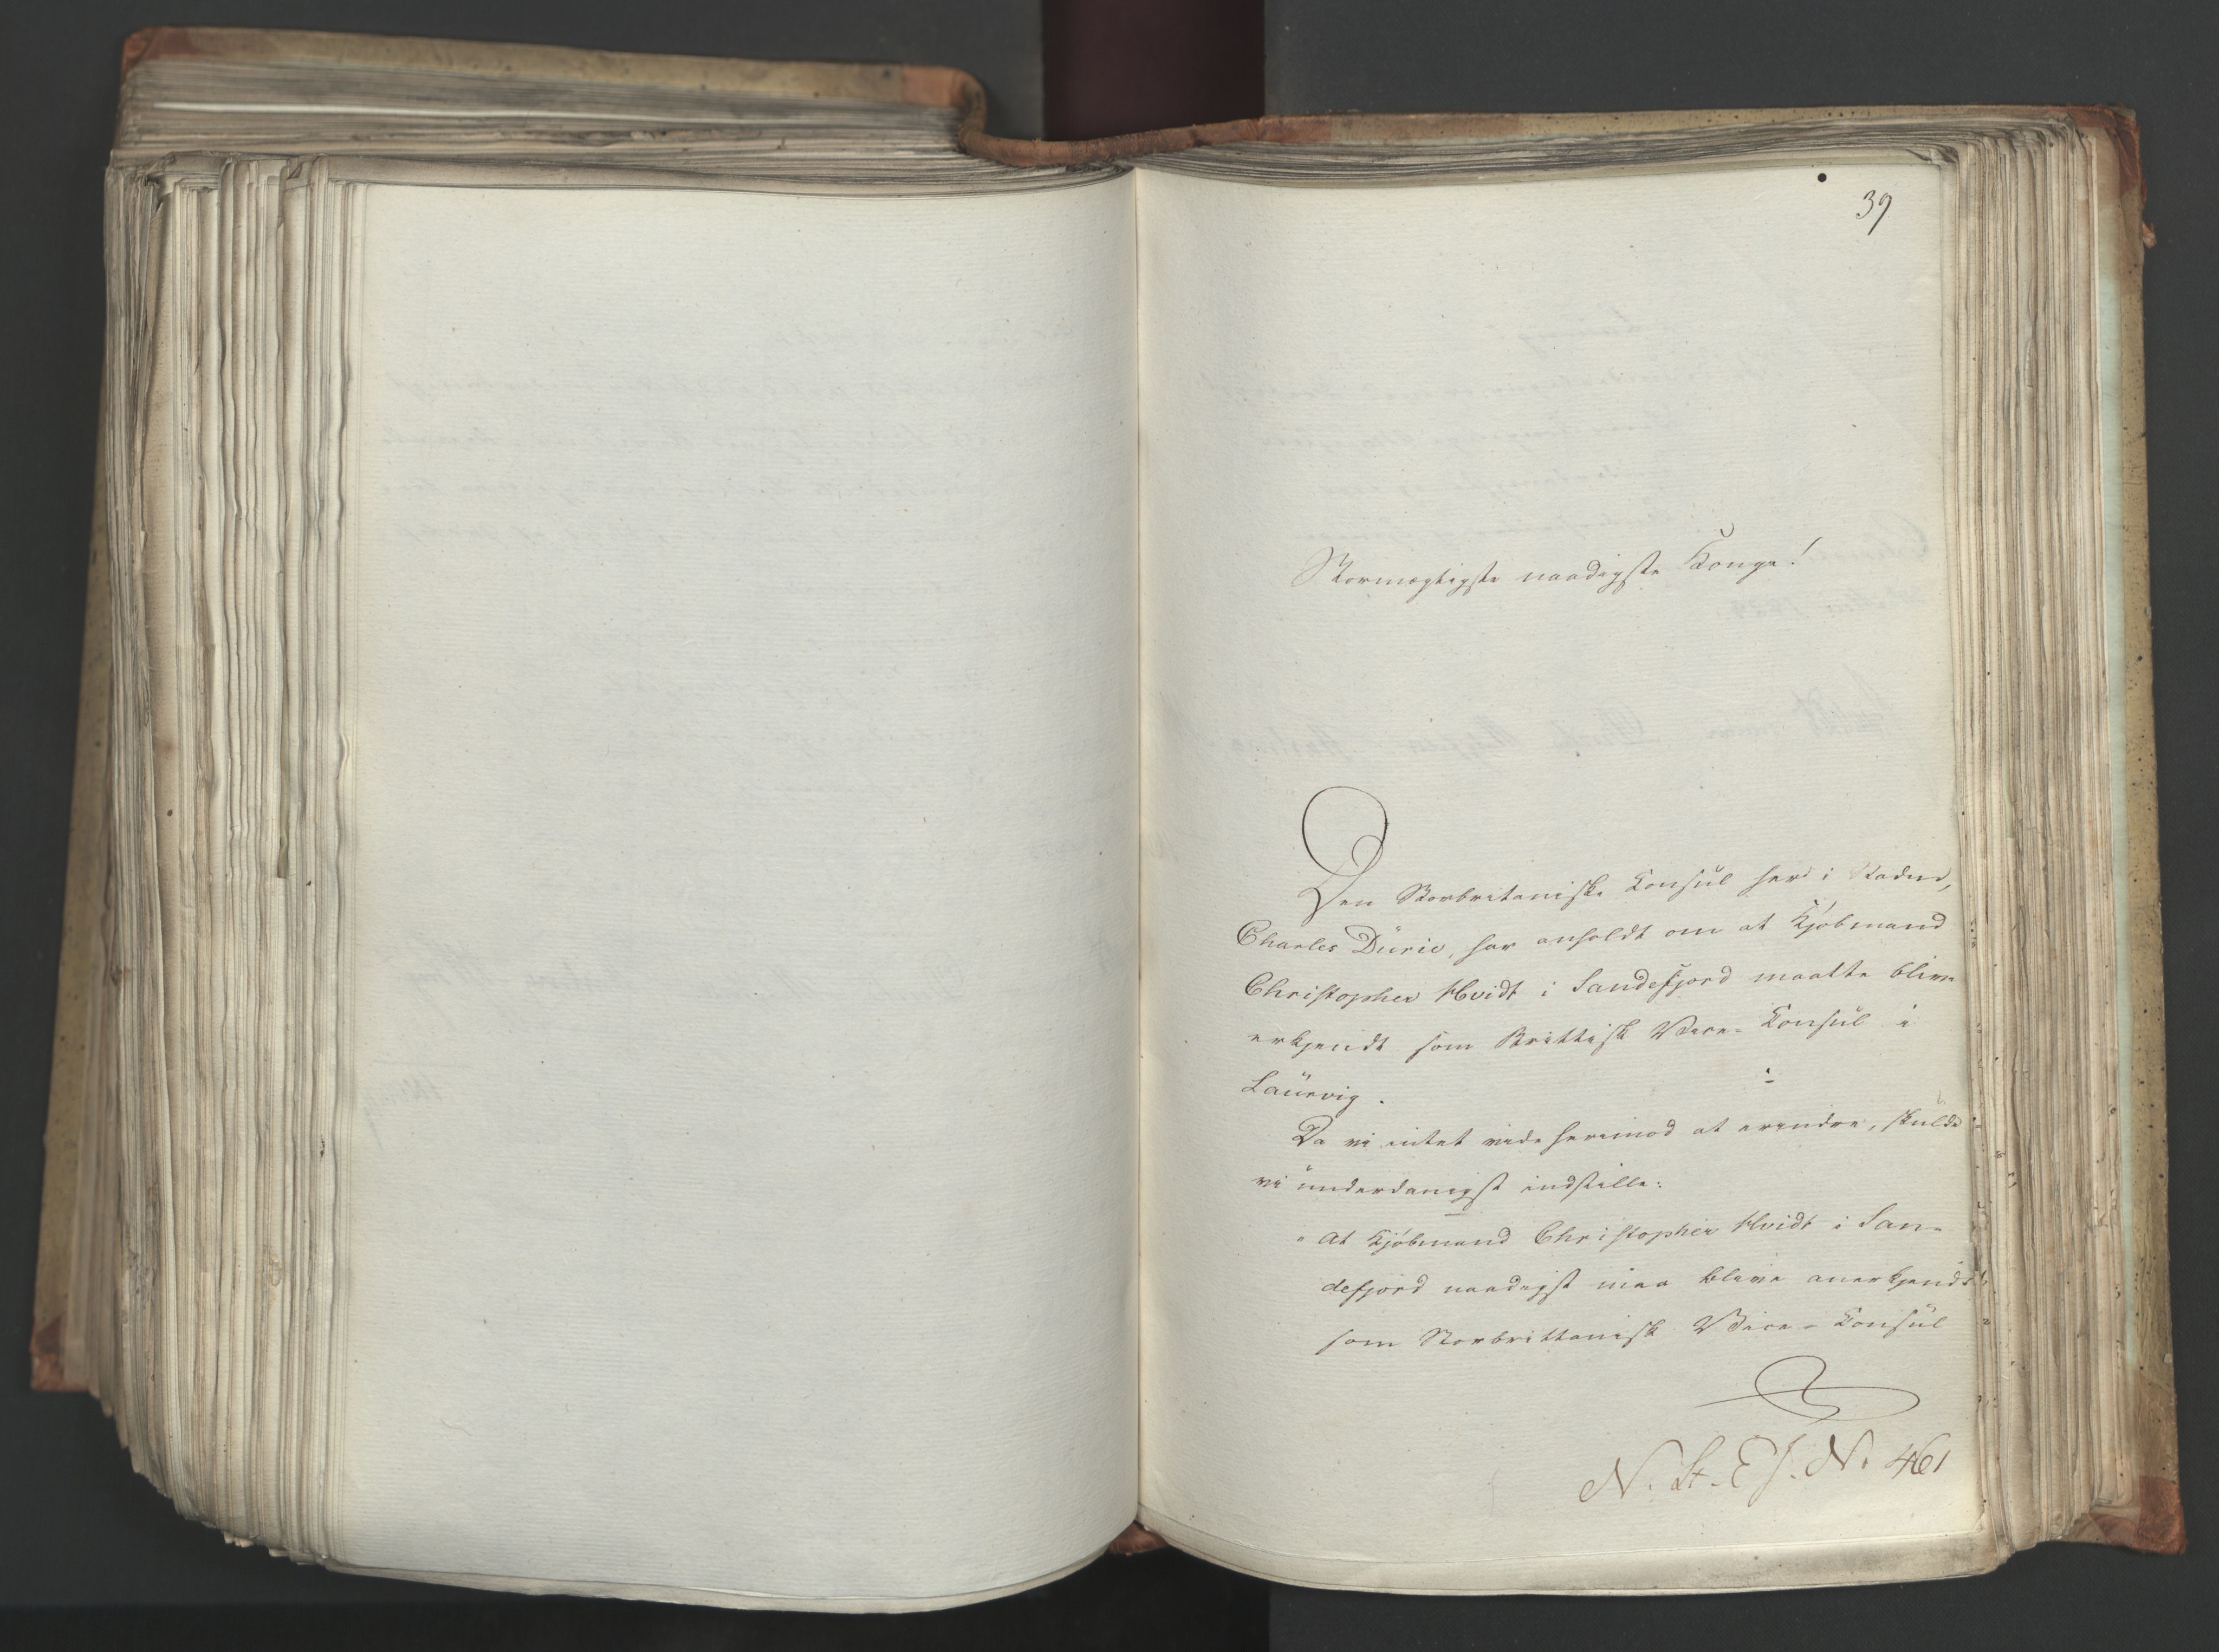 39
Stormægtigste naadigste Konge!
Den Storbritaniske Konsul her i Staden,
Charles Dürie, har anholdt om at Kjøbmand
Christopher Hvidt i Sandefjord maatte blive
erkjendt som Brittisk Vice-Konsul i
Laurvig.
Da vi intet vide herimod at erindre, skulde
vi underdanigst indstille:
"At Kjøbmand Christopher Hvidt i San-
defjord naadigst maa blive anerkjendt
som Storbrittanisk Vice-Konsul
N. St. E J. N. 461